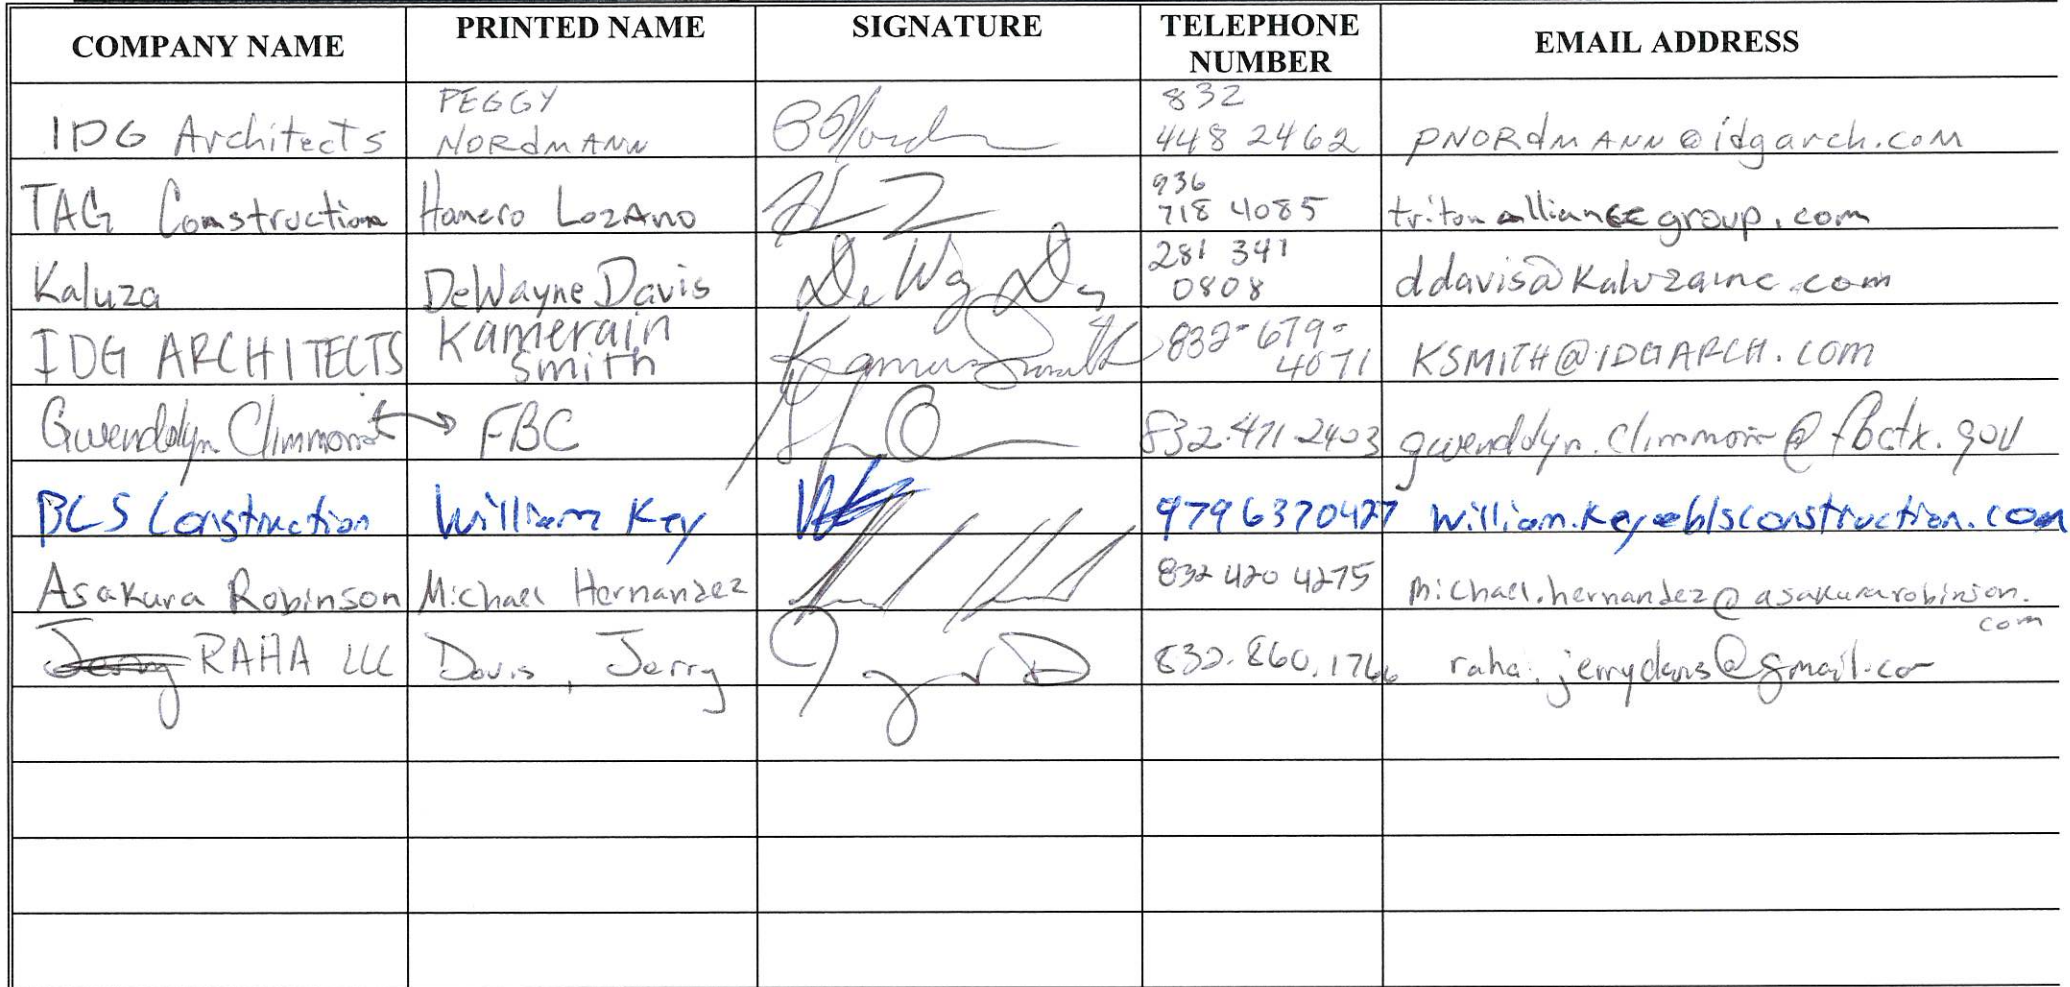 COMPANY NAME PRINTED NAME SIGNATURE TELEPHONE NUMBER EMAIL ADDRESS
IDG Architects PEGGY NORDMANN 832 448 2462 PNORDMANN@idgarch.com
TAG Construction Homero Lozano 936 718 4085 tritonalliancegroup.com
Kaluza DeWayne Davis 281 341 0808 ddavis@kaluzainc.com
IDG ARCHITECTS Kamerain Smith 832-679-4071 KSMITH@IDGARCH.COM
Gwendolyn Climmons FBC 832.471.2403 gwendolyn.climmons@fbctx.gov
BLS Construction William Key 9796370427 william.key@blsconstruction.com
Asakura Robinson Michael Hernandez 832 420 4275 michael.hernandez@asakurarobinson.com
Jerry RAHA LLC Davis, Jerry 832.860.1766 raha.jerrydavis@gmail.co